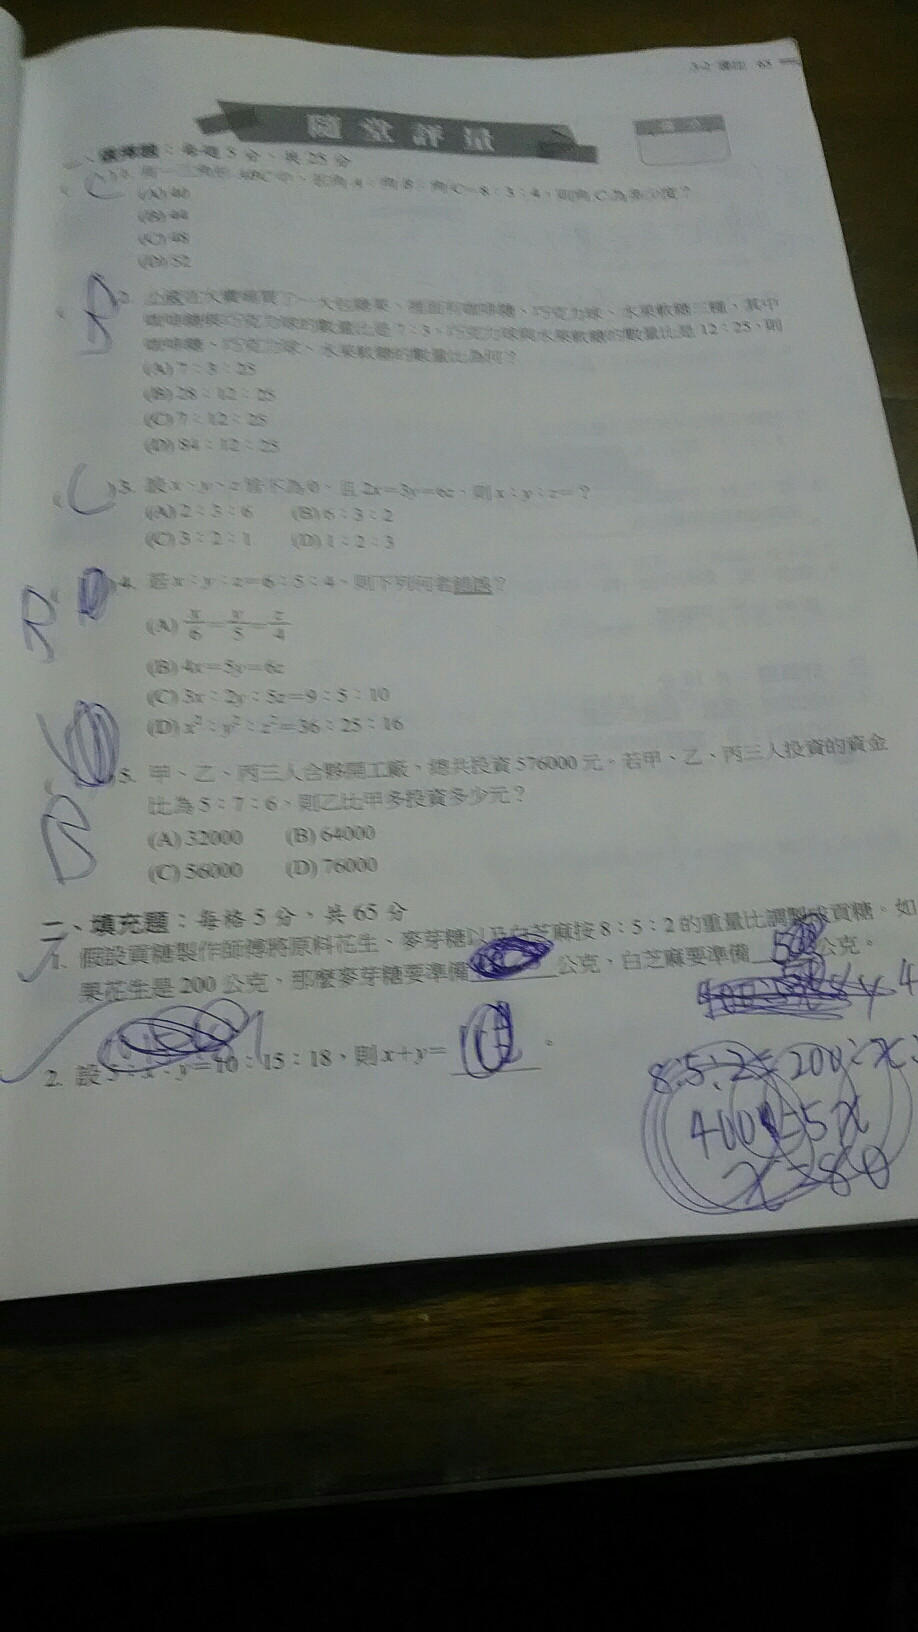 隨堂評量
選擇題：每題5分，共25分
ABC中，若角A：角B：角C=8：3：4，則角C為多少度？
(A) 40
(B) 44
(C) 48
(D) 52
2. 大賣場買了一大包糖果，裡面有咖啡糖、巧克力球、水果軟糖三種，其中
咖啡糖與巧克力球的數量比是7：3，巧克力球與水果軟糖的數量比是12：25，則
咖啡糖、巧克力球、水果軟糖的數量比為何？
(A) 7：3：25
(B) 28：12：25
(C) 7：12：25
(D) 84：12：25
C
3. 設x、y、z皆不為0，且2x=3y=6z，則x：y：z=？
(A) 2：3：6 (B) 6：3：2
(C) 3：2：1 (D) 1：2：3
4. 若x：y：z=6：5：4，則下列何者錯誤？
(A) x/6=y/5=z/4
(B) 4x=5y=6z
(C) 3x：2y：5z=9：5：10
(D) x²：y²：z²=36：25：16
5. 甲、乙、丙三人合夥開工廠，總共投資576000元。若甲、乙、丙三人投資的資金
比為5：7：6，則乙比甲多投資多少元？
(A) 32000 (B) 64000
(C) 56000 (D) 76000
二、填充題：每格5分，共65分
1. 假設貢糖製作師傅將原料花生、麥芽糖以及白芝麻按8：5：2的重量比調製成貢糖。如
果花生是200公克，那麼麥芽糖要準備 公克，白芝麻要準備 公克。
2. 設5：x：y=10：15：18，則x+y= 。
8:5:2=200:x:
400=5x
x=80